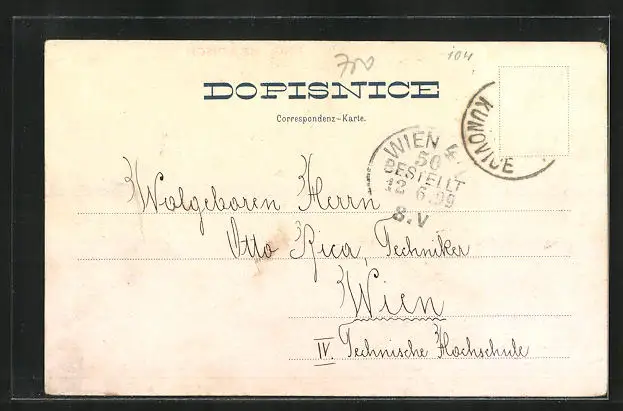 700
104
DOPISNICE
Correspondenz-Karte.
KUNOVICE
WIEN
50
BESTELLT
12 6.99
8.V
Wolgeboren Herrn
Otto Rica, Techniker
Wien
IV. Technische Hochschule